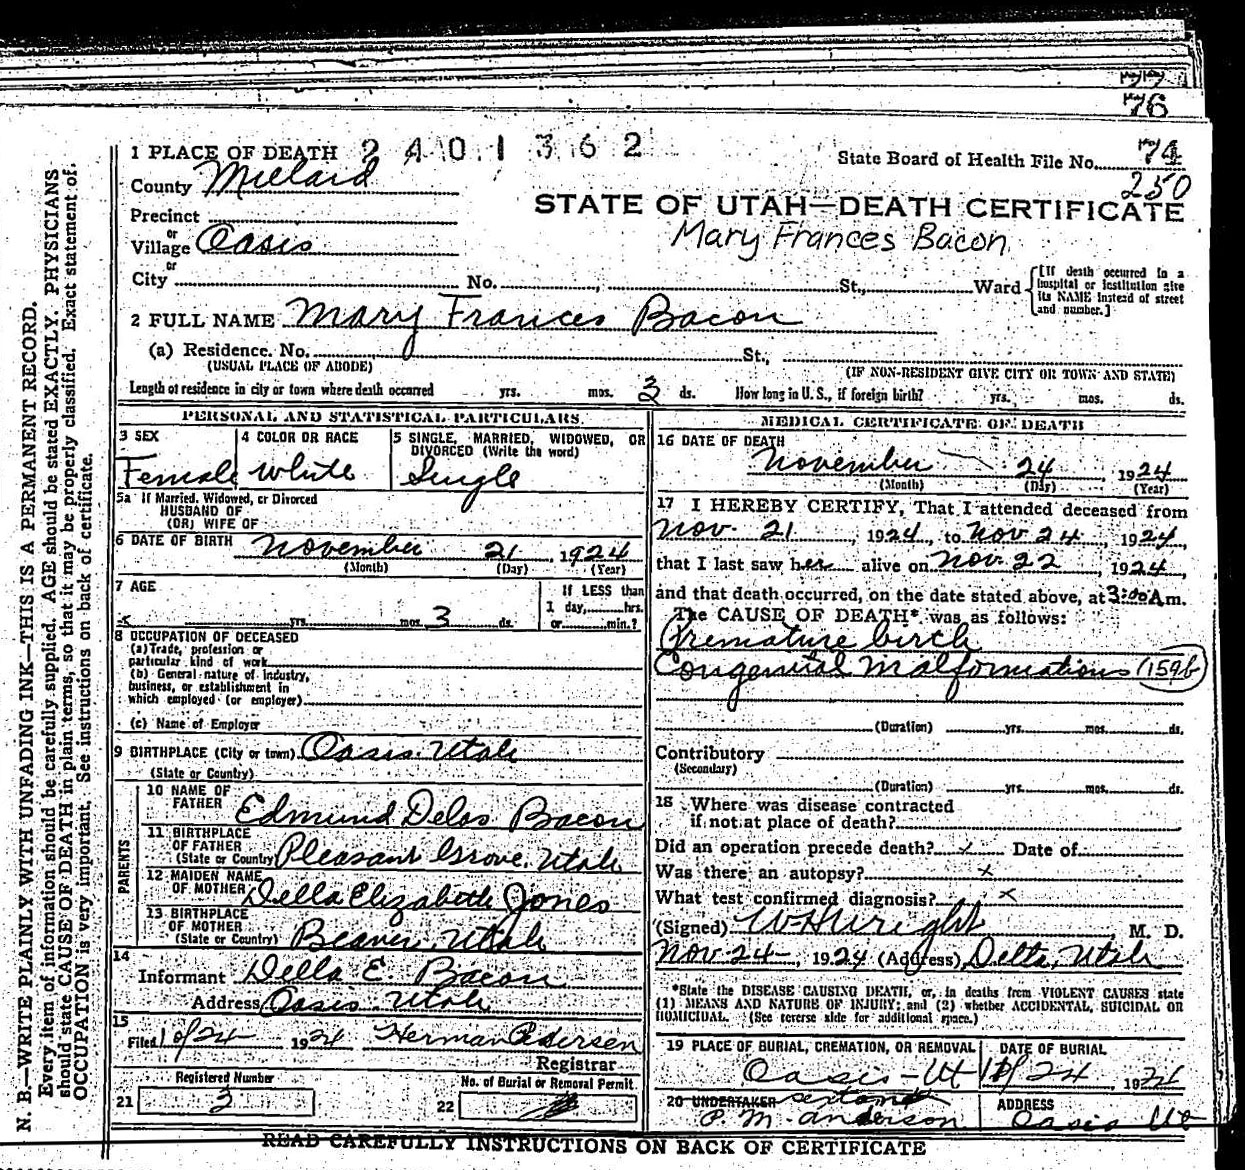 77
76
1 PLACE OF DEATH 2401362
State Board of Health File No. 74
250
County Millard
STATE OF UTAH—DEATH CERTIFICATE
Mary Frances Bacon
Precinct
or
Village Oasis
or
City No. St., Ward
[If death occurred in a hospital or institution give its NAME instead of street and number.]
2 FULL NAME Mary Frances Bacon
(a) Residence. No. St.,
(USUAL PLACE OF ABODE) (IF NON-RESIDENT GIVE CITY OR TOWN AND STATE)
Length of residence in city or town where death occurred yrs. mos. 3 ds. How long in U. S., if foreign birth? yrs. mos. ds.
PERSONAL AND STATISTICAL PARTICULARS.
3 SEX
Female
4 COLOR OR RACE
White
5 SINGLE, MARRIED, WIDOWED, OR
DIVORCED (Write the word)
Single
5a If Married, Widowed, or Divorced
HUSBAND OF
(OR) WIFE OF
6 DATE OF BIRTH November 21, 1924
(Month) (Day) (Year)
7 AGE
yrs. mos. 3 ds.
If LESS than
1 day, hrs.
or min.?
8 OCCUPATION OF DECEASED
(a) Trade, profession or
particular kind of work
(b) General nature of industry,
business, or establishment in
which employed (or employer)
(c) Name of Employer
9 BIRTHPLACE (City or town) Oasis Utah
(State or Country)
PARENTS
10 NAME OF
FATHER Edmund Delos Bacon
11 BIRTHPLACE
OF FATHER
(State or Country) Pleasant Grove, Utah
12 MAIDEN NAME
OF MOTHER Della Elizabeth Jones
13 BIRTHPLACE
OF MOTHER
(State or Country) Beaver, Utah
14
Informant Della E. Bacon
Address Oasis Utah
15
Filed 10/24 1924 Herman Pedersen
Registrar
Registered Number
21 3
No. of Burial or Removal Permit
22
MEDICAL CERTIFICATE OF DEATH
16 DATE OF DEATH
November 24 1924
(Month) (Day) (Year)
17 I HEREBY CERTIFY, That I attended deceased from
Nov. 21, 1924, to Nov 24, 1924,
that I last saw her alive on Nov. 22, 1924,
and that death occurred, on the date stated above, at 3:00 A m.
The CAUSE OF DEATH* was as follows:
Premature birth
Congenital Malformations (159b)
(Duration) yrs. mos. ds.
Contributory
(Secondary)
(Duration) yrs. mos. ds.
18 Where was disease contracted
if not at place of death?
Did an operation precede death? Date of
Was there an autopsy? x
What test confirmed diagnosis? x
(Signed) W H Wright, M. D.
Nov 24, 1924 (Address) Delta, Utah
*State the DISEASE CAUSING DEATH, or, in deaths from VIOLENT CAUSES state
(1) MEANS AND NATURE OF INJURY; and (2) whether ACCIDENTAL, SUICIDAL OR
HOMICIDAL. (See reverse side for additional space.)
19 PLACE OF BURIAL, CREMATION, OR REMOVAL
Oasis - Ut
DATE OF BURIAL
24 1924
20 UNDERTAKER sexton
P. M. Anderson
ADDRESS
Oasis Ut
READ CAREFULLY INSTRUCTIONS ON BACK OF CERTIFICATE
N. B.—WRITE PLAINLY WITH UNFADING INK—THIS IS A PERMANENT RECORD.
Every item of information should be carefully supplied. AGE should be stated EXACTLY. PHYSICIANS
should state CAUSE OF DEATH in plain terms, so that it may be properly classified. Exact statement of
OCCUPATION is very important. See instructions on back of certificate.